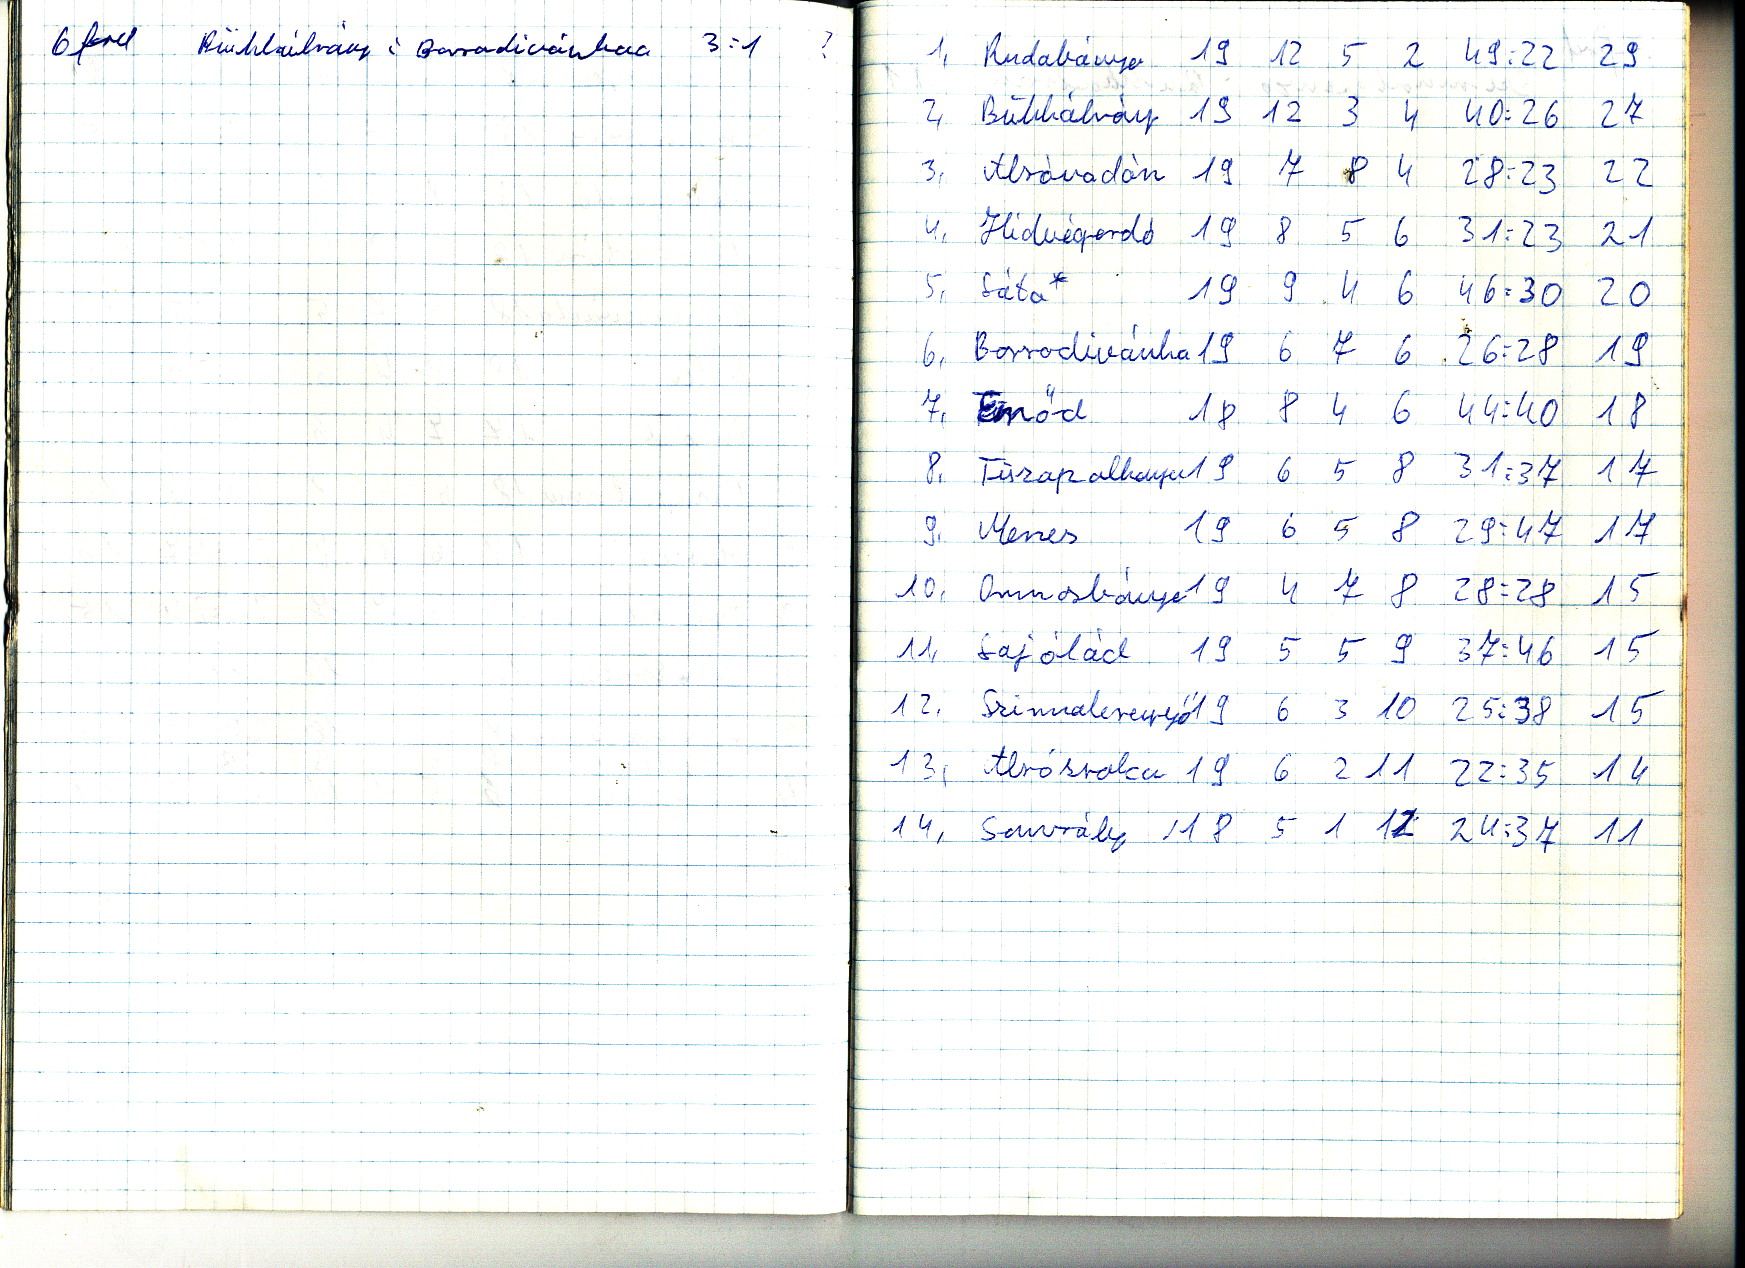 6 ford Bükkábrány : Borsodivánka 3:1 ?
1, Rudabánya 19 12 5 2 49:22 29
2, Bükkábrány 19 12 3 4 40:26 27
3, Alsóvadász 19 7 8 4 28:23 22
4, Hidvégardó 19 8 5 6 31:23 21
5, Sáta* 19 9 4 6 46:30 20
6, Borsodivánka 19 6 7 6 26:28 19
7, Emőd 18 8 4 6 44:40 18
8, Tiszapalkonya 19 6 5 8 31:37 17
9, Meres 19 6 5 8 29:47 17
10, Ormosbánya 19 4 7 8 28:28 15
11, Sajólád 19 5 5 9 37:46 15
12, Szirmabesenyő 19 6 3 10 25:38 15
13, Alsózsolca 19 6 2 11 22:35 14
14, 18 5 1 12 24:37 11